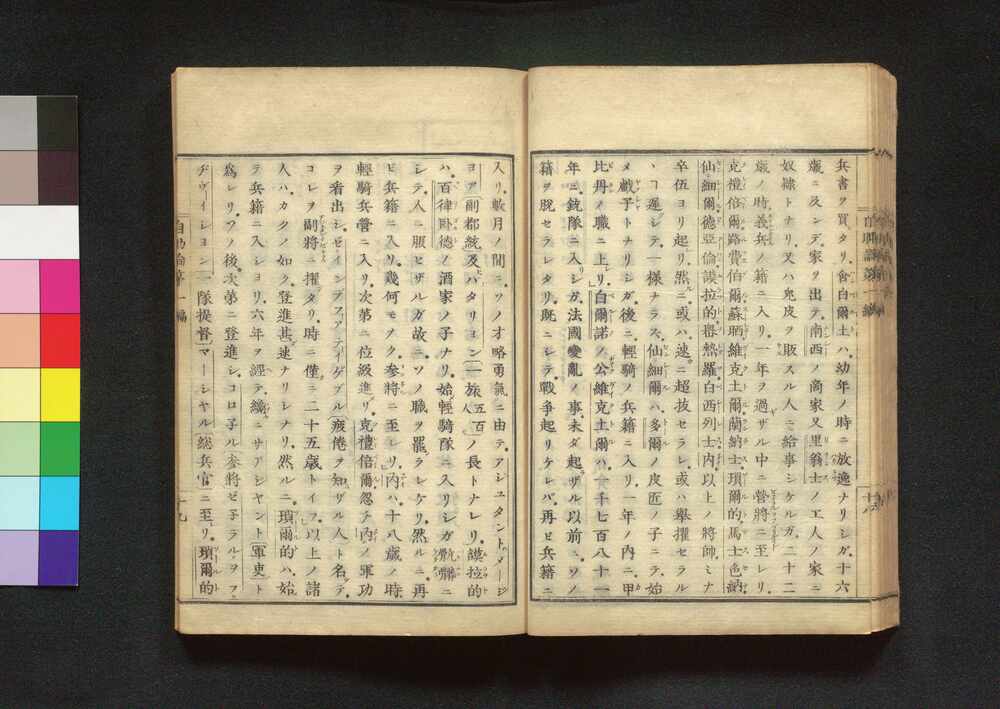 兵書ヲ買タリ、會白爾土ハ、幼年ノ時ニ放逸ナリシガ、十六
歳ニ及ンデ、家ヲ出テ、南西ノ商家、又里翁士ノ工人ノ家ニ
奴隷トナリ、又ハ兎皮ヲ販スル人ニ給事シケルガ、二十二
歳ノ時義兵ノ籍ニ入リ、一年ヲ過ザル中ニ營將ニ至レリ
克禮倍爾路費伯爾蘇晒維克土爾蘭納士瑣爾的馬士色納
仙細爾德亞倫謨拉的
白西列士内以上ノ將帥ミナ
卒伍ヨリ起リ、然ニ或ハ速ニ超拔セラレ、或ハ舉擢セラル
ヽコ遲シテ、一樣ナラス、仙細爾ハ、多爾ノ皮匠ノ子ニテ、始
メ戲子トナリシガ、後ニ輕騎ノ兵籍ニ入リ、一年ノ内ニ、甲
比丹ノ職ニ上リ、白爾諾ノ公維克土爾ハ、一千七百八十一
年ニ、銃隊ニ入シガ、法國變亂ノ事、未ダ起ザル以前ニ、ソノ
籍ヲ脱セラレタリ、既ニシテ戰爭起リケレバ、再ビ兵籍ニ
入リ、數月ノ間ニ、ソノオ略勇氣ニ由テ、アシュタント、メージ
ヨア副都統及バタリヨン一旅五百人ノ長トナレリ、謨拉的
ハ、百律臥德ノ酒家ノ子ナリ、始輕騎隊ニ入リシガ、骯髒ニ
シテ、人ニ服ヒザルガ故ニ、ソノ職ヲ罷ラレケリ、然ルニ再
ビ兵籍ニ入リ、幾何モナク參將ニ至レリ、内ハ、十八歳ノ時
輕騎兵營ニ入リ、次第ニ位級進リ、克禮倍爾忽チ内ノ軍功
ヲ看出シ、ゼインデファアティゲブル疲倦ヲ知ザル人ト名テ、
コレヲ副將ニ擢タリ、時ニ僅ニ二十五歳トイフ、以上ノ諸
人ハ、カクノ如ク登進甚速ナリシナリ、然ルニ瑣爾的ハ、始
テ兵籍ニ入シヨリ、六年ヲ經テ、纔ニサアジヤント軍吏ト
爲レリ、ソノ後次第ニ登進シ、コロ子ル參將ゼ子ラル、ヲフ、
ヂヴィイション一隊提督マーシャル總兵官ニ至リ、瑣爾的
自助論第一編
十九